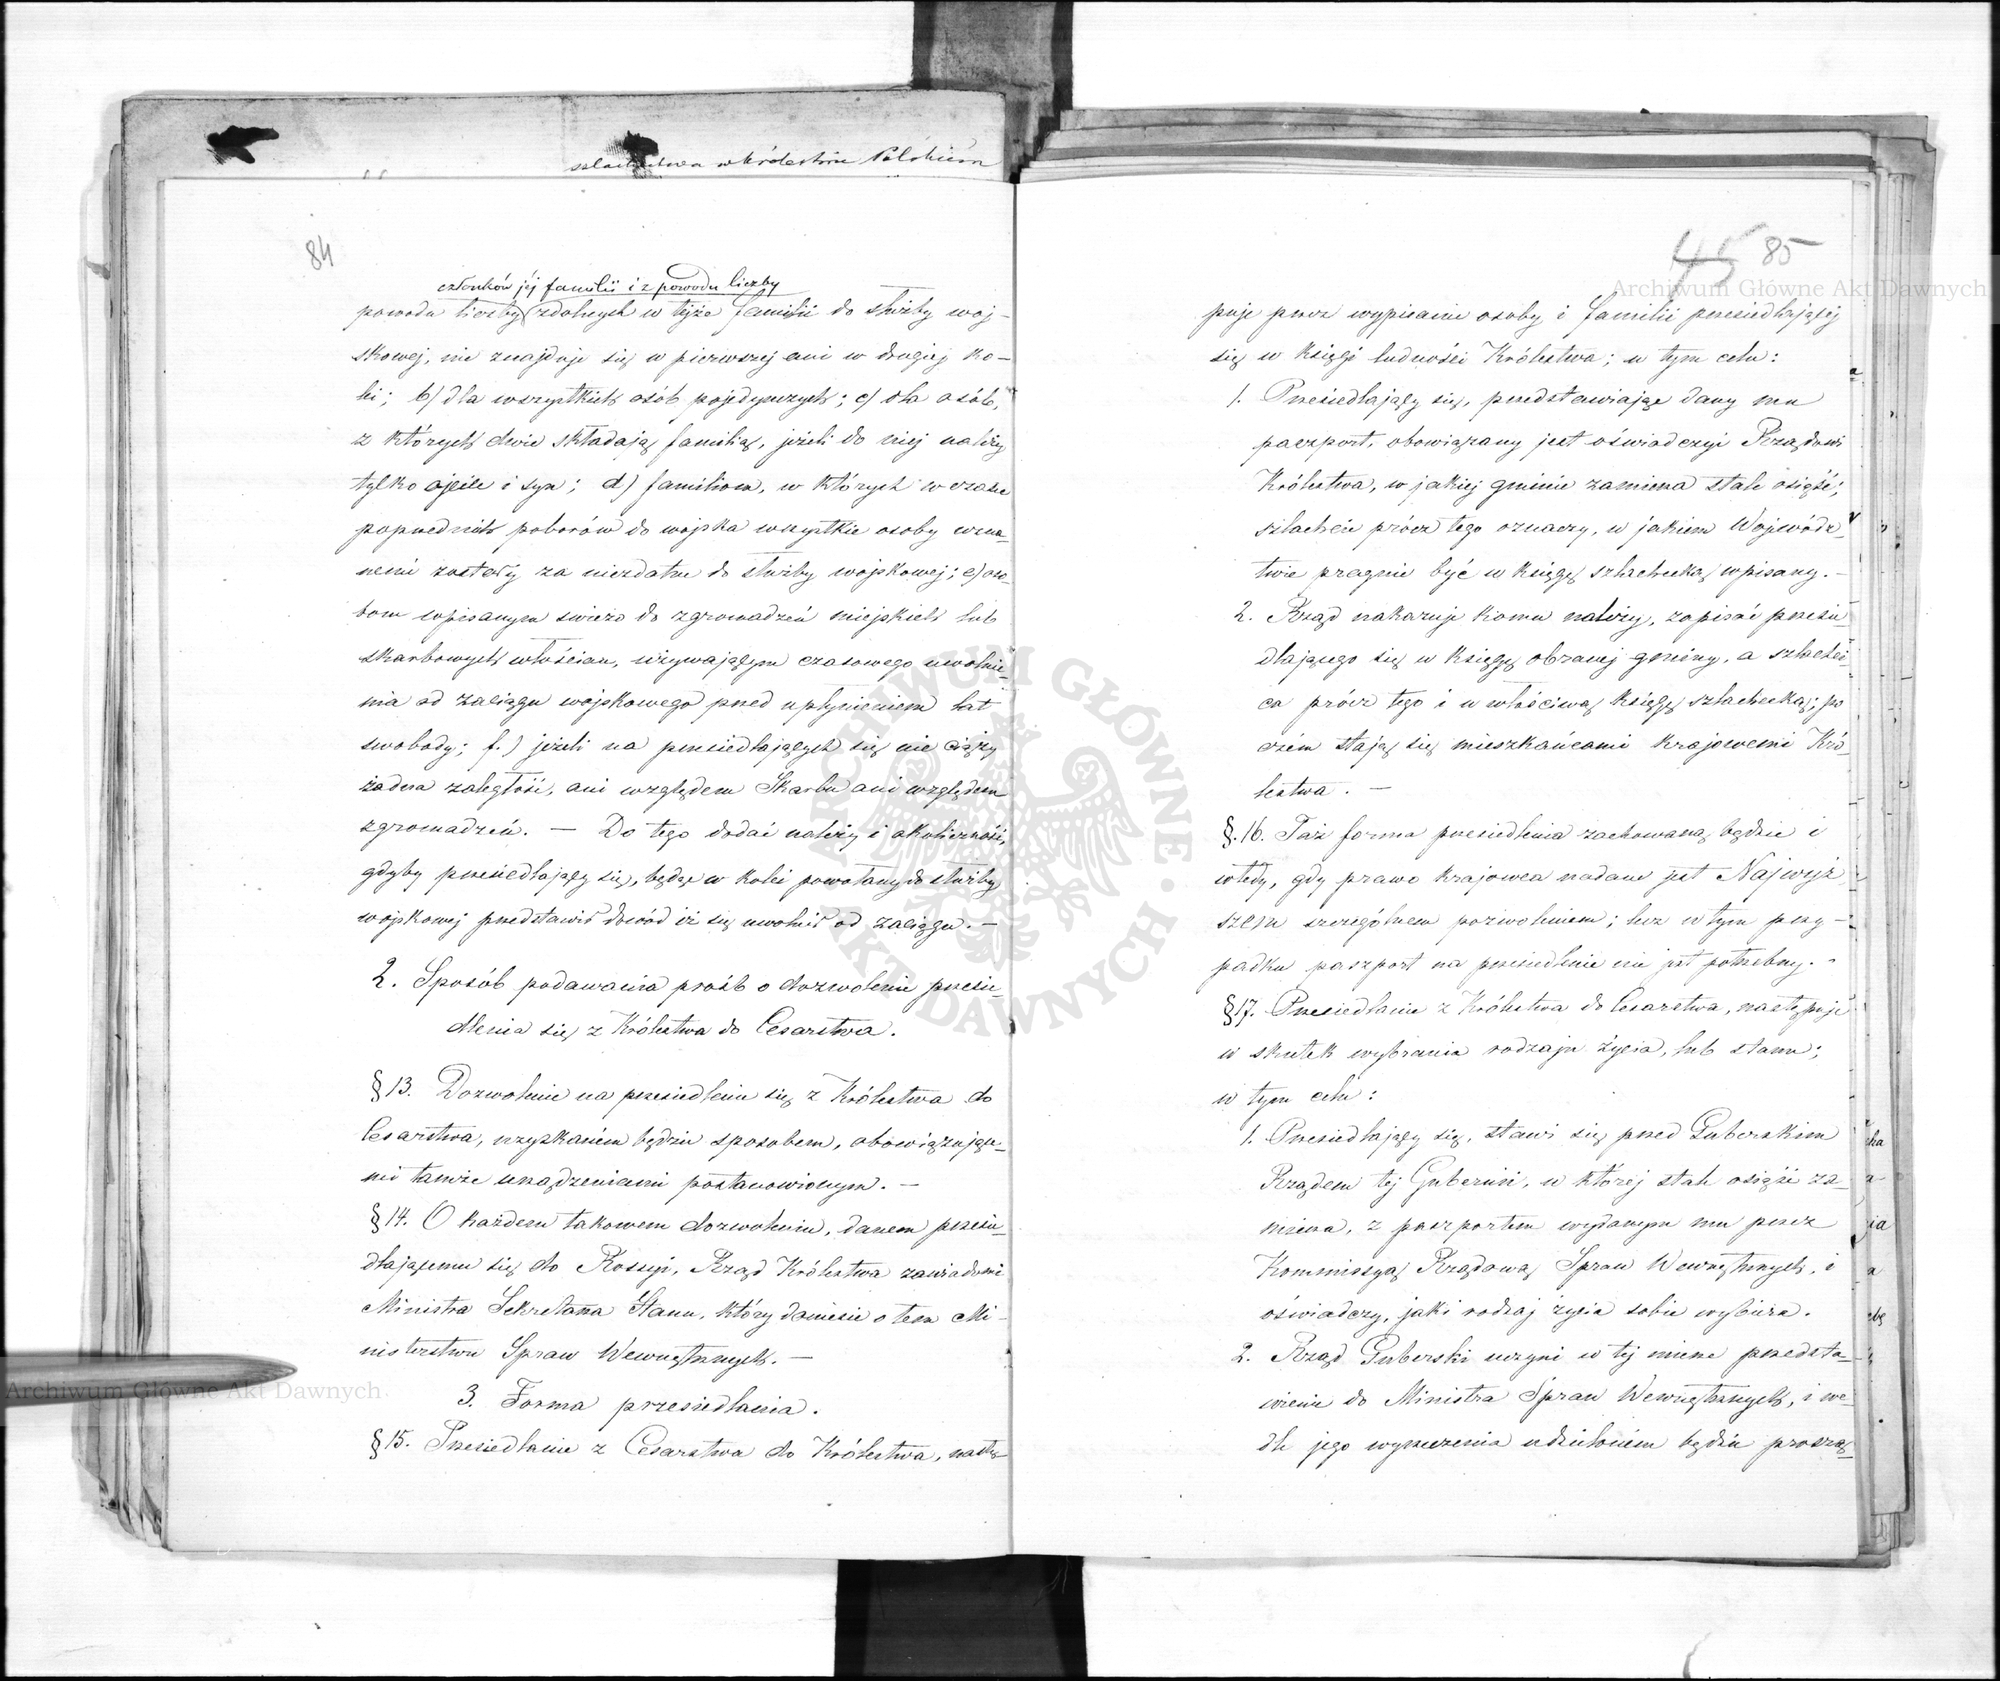 szlachectwa w Królestwie Polskiém
84
członków jéj familii i z powodu liczby
powodu liczby zdolnych w tejże familii do służby woj-
skowej, nie znajduje się w pierwszej ani w drugiej ko-
lei; b) dla wszystkich osób pojedynczych; c) dla osób,
z których dwie składają familią, jeżeli do niej należy
tylko ojciec i syn; d) familiom, w których w czasie
poprzednich poborów do wojska wszystkie osoby uzna-
nemi zostały za niezdatne do służby wojskowej; e) oso-
bom wpisanym świeżo do zgromadzeń miejskich lub
skarbowych włościan, używającym czasowego uwolnie-
nia od zaciągu wojskowego przed upłynieniem lat
swobody; f.) jeżeli na przesiedlających się nie ciąży
żadna zaległość, ani względem Skarbu ani względem
zgromadzeń. — Do tego dodać należy i okoliczność,
gdyby przesiedlający się, będąc w kolei powołany do służby
wojskowej przedstawił dowód iż się uwolnił od zaciągu. —
2. Sposób podawania próśb o dozwolenie przesie-
dlenia się z Królestwa do Cesarstwa.
§ 13. Dozwolenie na przesiedlenie się z Królestwa do
Cesarstwa, uzyskaniem będzie sposobem, obowiązujące-
mi tamże urządzeniami postanowionym. —
§ 14. O każdem takowem dozwoleniu, danem przesie-
dlającemu się do Rossyi, Rząd Królestwa zawiadomi
Ministra Sekretarza Stanu, który doniesie o tem Mi-
nisterstwu Spraw Wewnętrznych. —
3. Forma przesiedlania.
§ 15. Przesiedlanie z Cesarstwa do Królestwa, nastę-
45 85
puje przez wypisanie osoby i familii przesiedlającej
się w księgi ludności Królestwa; w tym celu:
1. Przesiedlający się, przedstawiając dany mu
paszport, obowiązany jest oświadczyć Rządowi
Królestwa, w jakiej gminie zamierza stale osiąść;
szlachcic prócz tego oznaczy, w jakiem Wojewódz-
twie pragnie być w księgę szlachecką wpisany. —
2. Rząd nakazuje komu należy, zapisać przesie-
dlającego się w księgę obranej gminy, a szlachci-
ca prócz tego i w właściwą księgę szlachecką; po
czém stają się mieszkańcami krajowemi Kró-
lestwa. —
§. 16. Taż forma przesiedlenia zachowaną będzie i
wtedy, gdy prawo krajowca nadane jest Najwyż-
szem szczególnem pozwoleniem; lecz w tym przy-
padku paszport na przesiedlenie nie jest potrzebny. -
§ 17. Przesiedlanie z Królestwa do Cesarstwa, następuje
w skutek wybrania rodzaju życia, lub stanu;
w tym celu:
1. Przesiedlający się, stawi się przed Guberskim
Rządem tej Gubernii, w której stale osiąść za-
mierza, z paszportem wydanym mu przez
Kommissyą Rządową Spraw Wewnętrznych, i
oświadczy, jaki rodzaj życia sobie wybiera.
2. Rząd Guberski uczyni w tej mierze przedsta-
wienie do Ministra Spraw Wewnętrznych, i we-
dle jego wyrzeczenia udzielonem będzie proszą-
Archiwum Główne Akt Dawnych
Archiwum Główne Akt Dawnych
ARCHIWUM GŁÓWNE • AKT DAWNYCH •